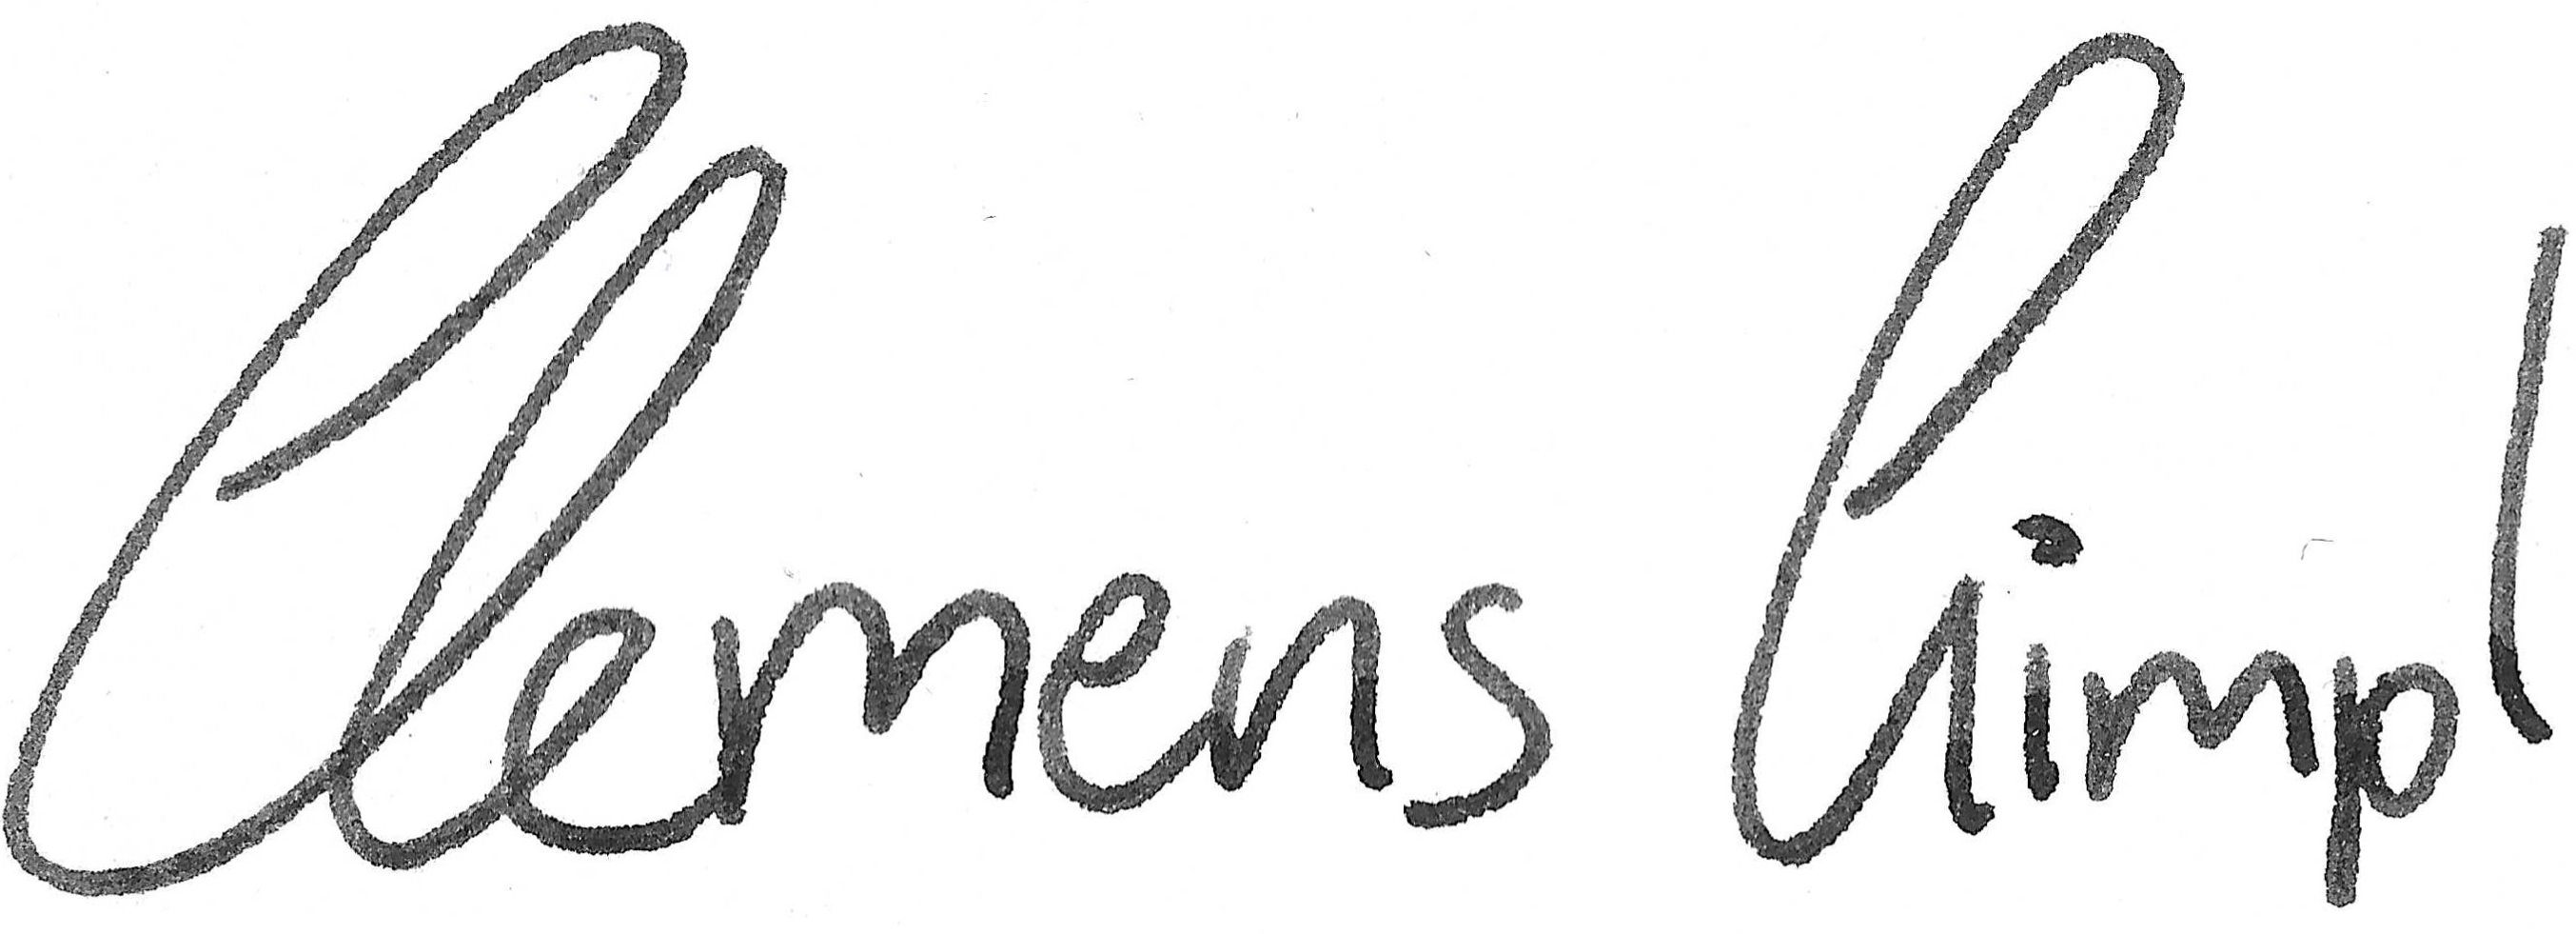 Clemens Gimpl